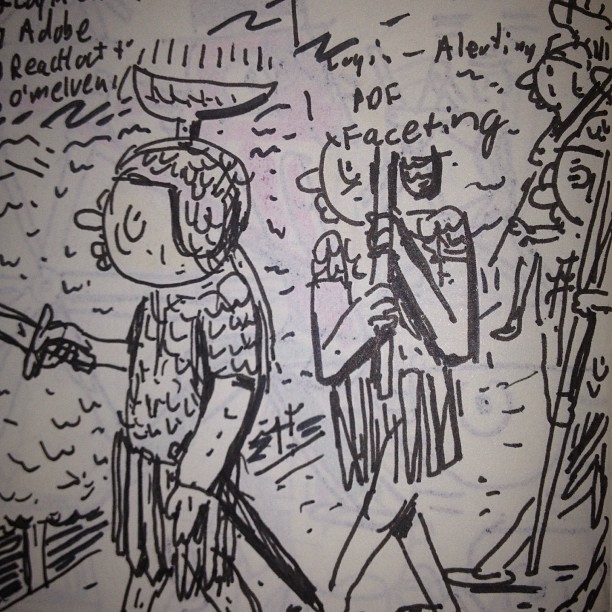 Adobe
React
O'melveny
Login - Alerting
PDF
Faceting